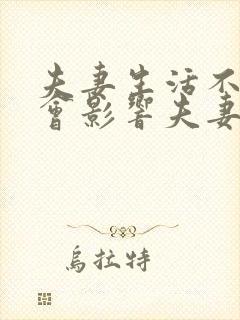 夫妻生活不
會影響夫妻
烏拉特